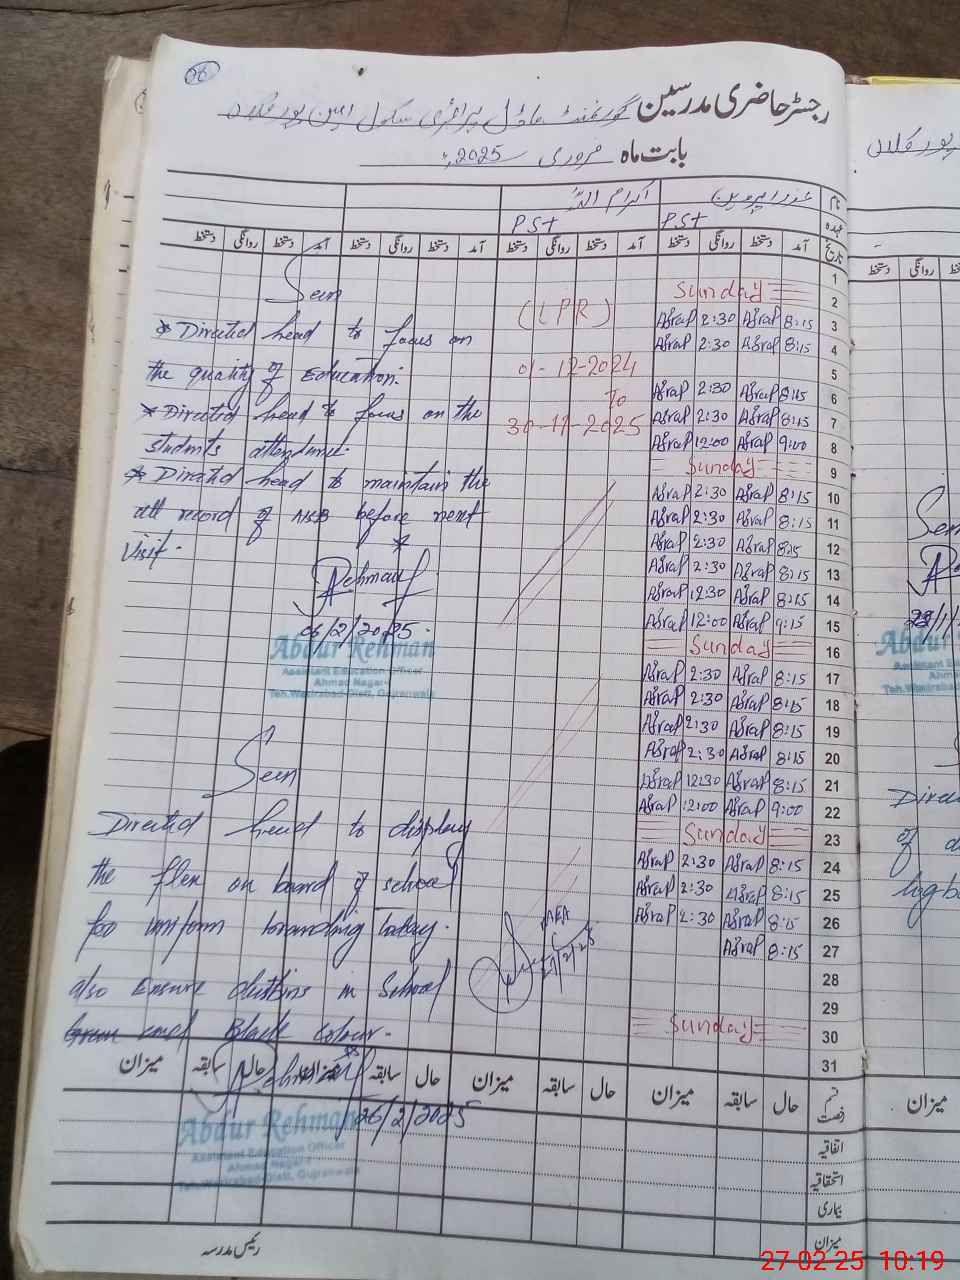 26
رجسٹر حاضری مدرسین گورنمنٹ ماڈل پرائمری سکول امین پور کلاں
بابت ماہ فروری 2025ء
نام عذرا پروین اکرام اللہ
عہدہ PST PST
تاریخ آمد دستخط روانگی دستخط آمد دستخط روانگی دستخط آمد دستخط روانگی دستخط آمد دستخط روانگی دستخط
1
2 Sunday
3 8:15 2:30
4 8:15 2:30
5
6 8:15 2:30
7 8:15 2:30
8 9:00 12:00
9 Sunday
10 8:15 2:30
11 8:15 2:30
12 8:15 2:30
13 8:15 2:30
14 8:15 12:30
15 9:15 12:00
16 Sunday
17 8:15 2:30
18 8:15 2:30
19 8:15 2:30
20 8:15 2:30
21 8:15 12:30
22 9:00 12:00
23 Sunday
24 8:15 2:30
25 8:15 2:30
26 8:15 2:30
27 8:15
28
29
30 Sunday
31
(LPR)
01-12-2024
To
30-11-2025
Seen
* Directed head to focus on
the quality of Education.
* Directed head to focus on the
students attendance.
* Directed head to maintain the
all record of NSB before next
Visit.
Rehman
06/2/2025
Abdur Rehman
Assistant Education Officer
Ahmad Nagar-I
Teh.Wazirabad-Distt, Gujranwala
Seen
Directed head to display
the flex on board of school
for uniform branding today.
also Ensure dustbins in School
Green and Black Colour.
Rehman
26/2/2025
Abdur Rehman
Assistant Education Officer
Ahmad Nagar-I
Teh.Wazirabad-Distt, Gujranwala
27/2/25
قسم رخصت حال سابقہ میزان حال سابقہ میزان حال سابقہ میزان حال سابقہ میزان
اتفاقیہ
استحقاقیہ
بیماری
میزان
رئیس مدرسہ
پور کلاں
روانگی دستخط
میزان
27-02-25 10:19